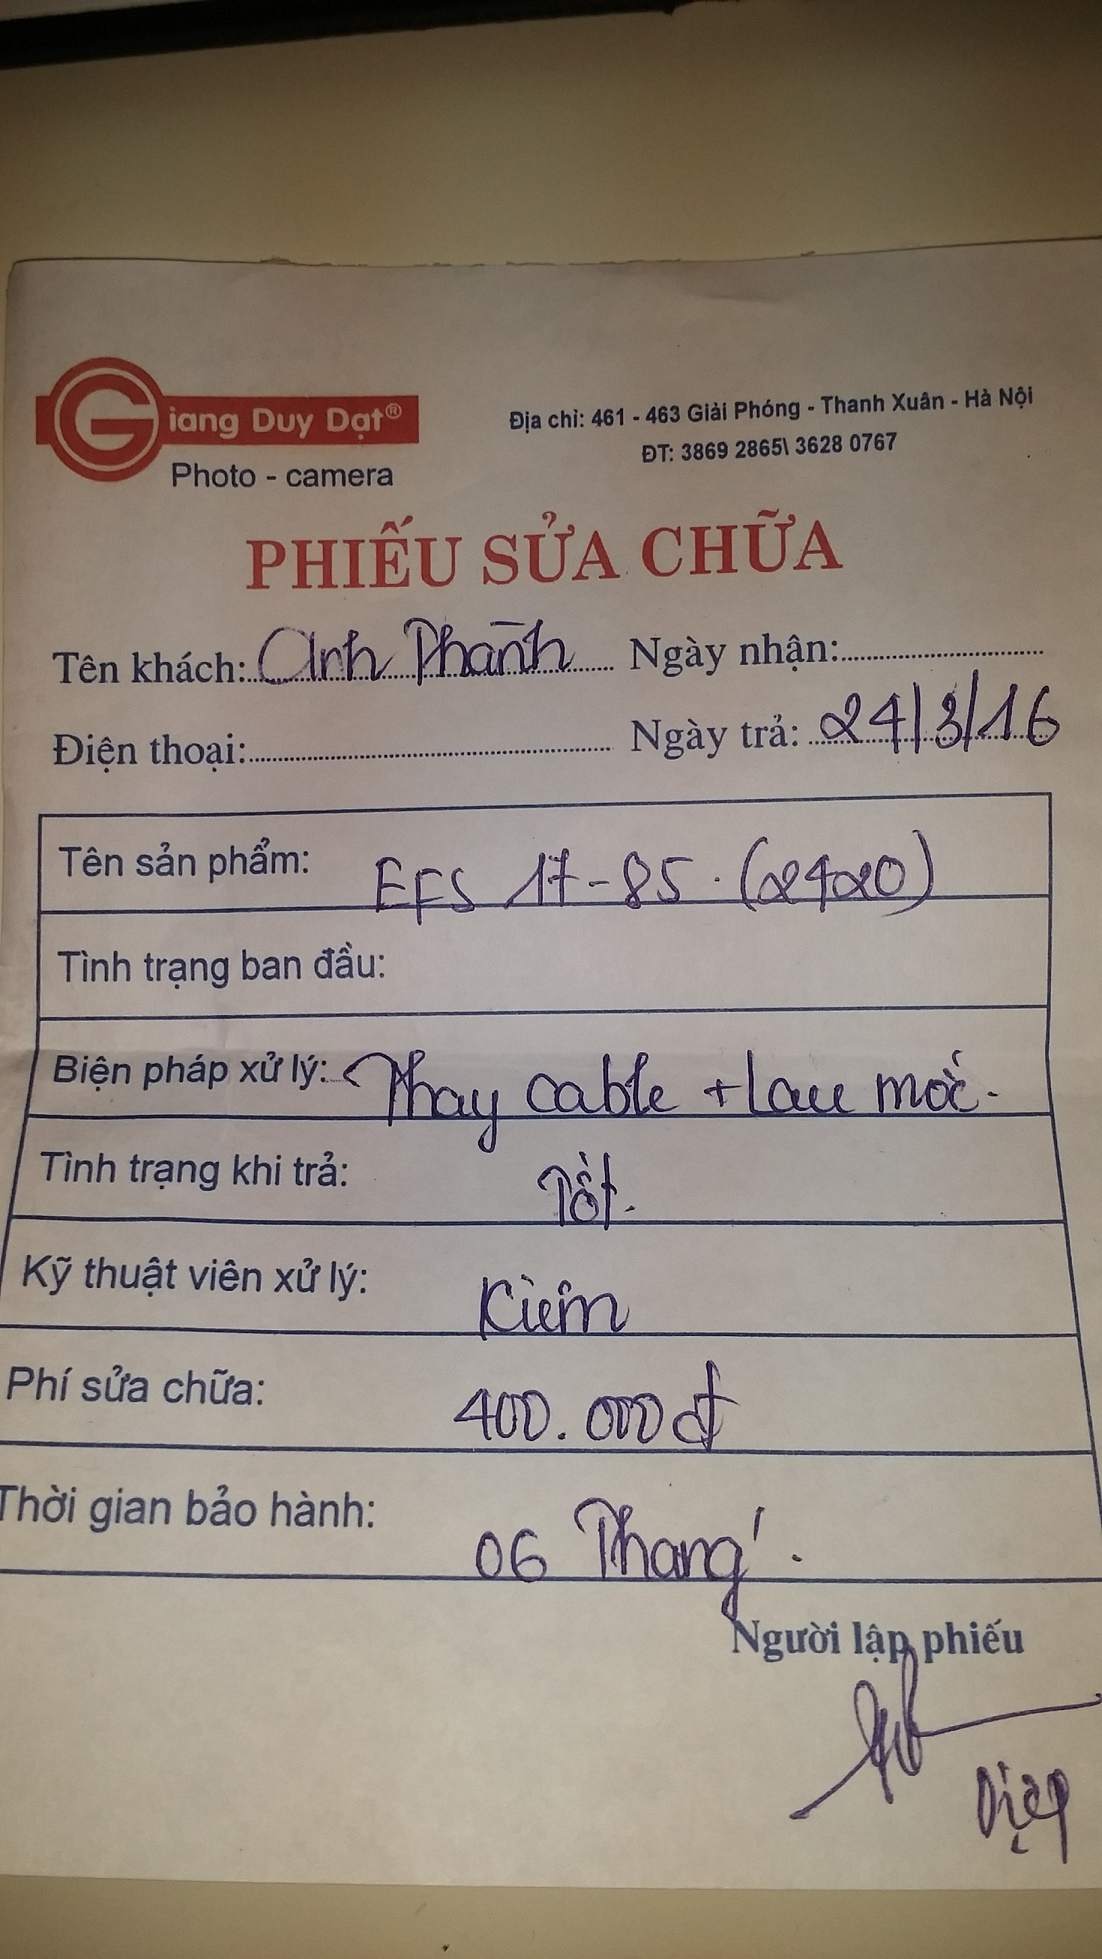 Giang Duy Đạt®
Photo - camera
Địa chỉ: 461 - 463 Giải Phóng - Thanh Xuân - Hà Nội
ĐT: 3869 2865\ 3628 0767
PHIẾU SỬA CHỮA
Tên khách: Anh Thành Ngày nhận:
Điện thoại: Ngày trả: 24/3/16
Tên sản phẩm: EFS 17-85. (2420)
Tình trạng ban đầu:
Biện pháp xử lý: Thay cable + lau mốc.
Tình trạng khi trả: Tốt.
Kỹ thuật viên xử lý: Kiêm
Phí sửa chữa: 400.000đ
Thời gian bảo hành: 06 Tháng.
Người lập phiếu
Diệp